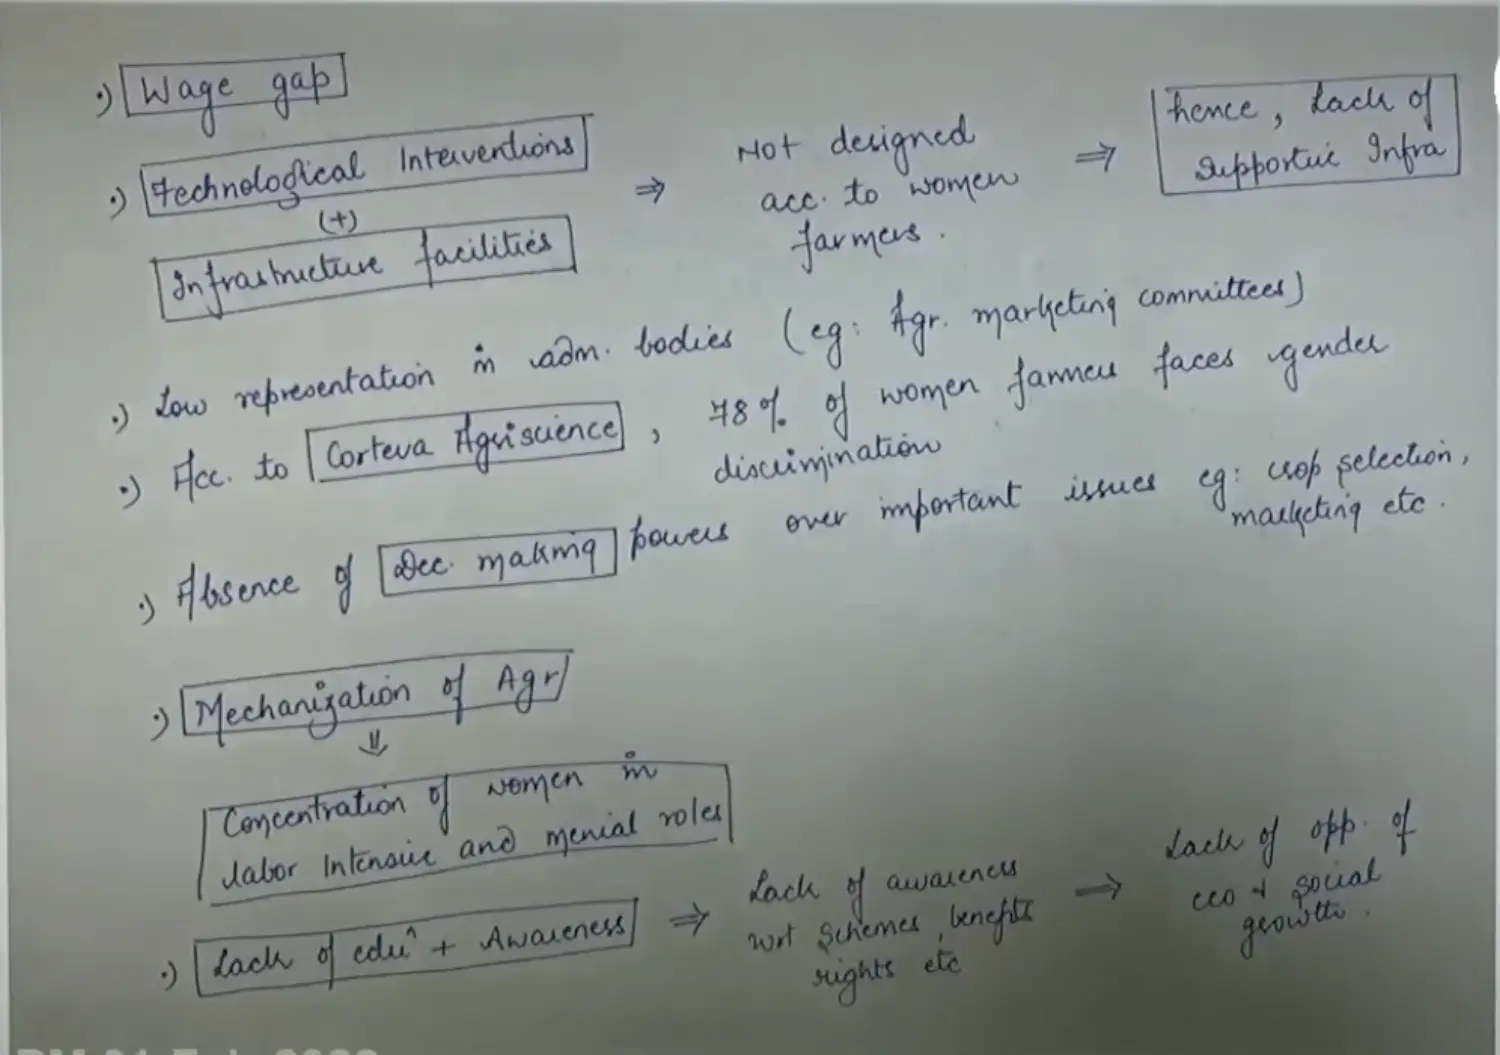 ·) Wage gap
·) Technological Interventions
(+)
Infrastructure facilities
⇒ Not designed
acc. to women
farmers.
⇒ hence, Lack of
Supportive Infra
·) Low representation in adm. bodies (eg: Agr. marketing committees)
·) Acc. to Corteva Agriscience, 78% of women farmers faces gender
discrimination
·) Absence of Dec. making powers over important issues eg: crop selection,
marketing etc.
·) Mechanization of Agr
⇓
Concentration of women in
labor Intensive and menial roles
·) Lack of eduⁿ + Awareness
⇒ Lack of awareness
wrt schemes, benefits
rights etc
⇒ Lack of opp. of
eco & social
growth.